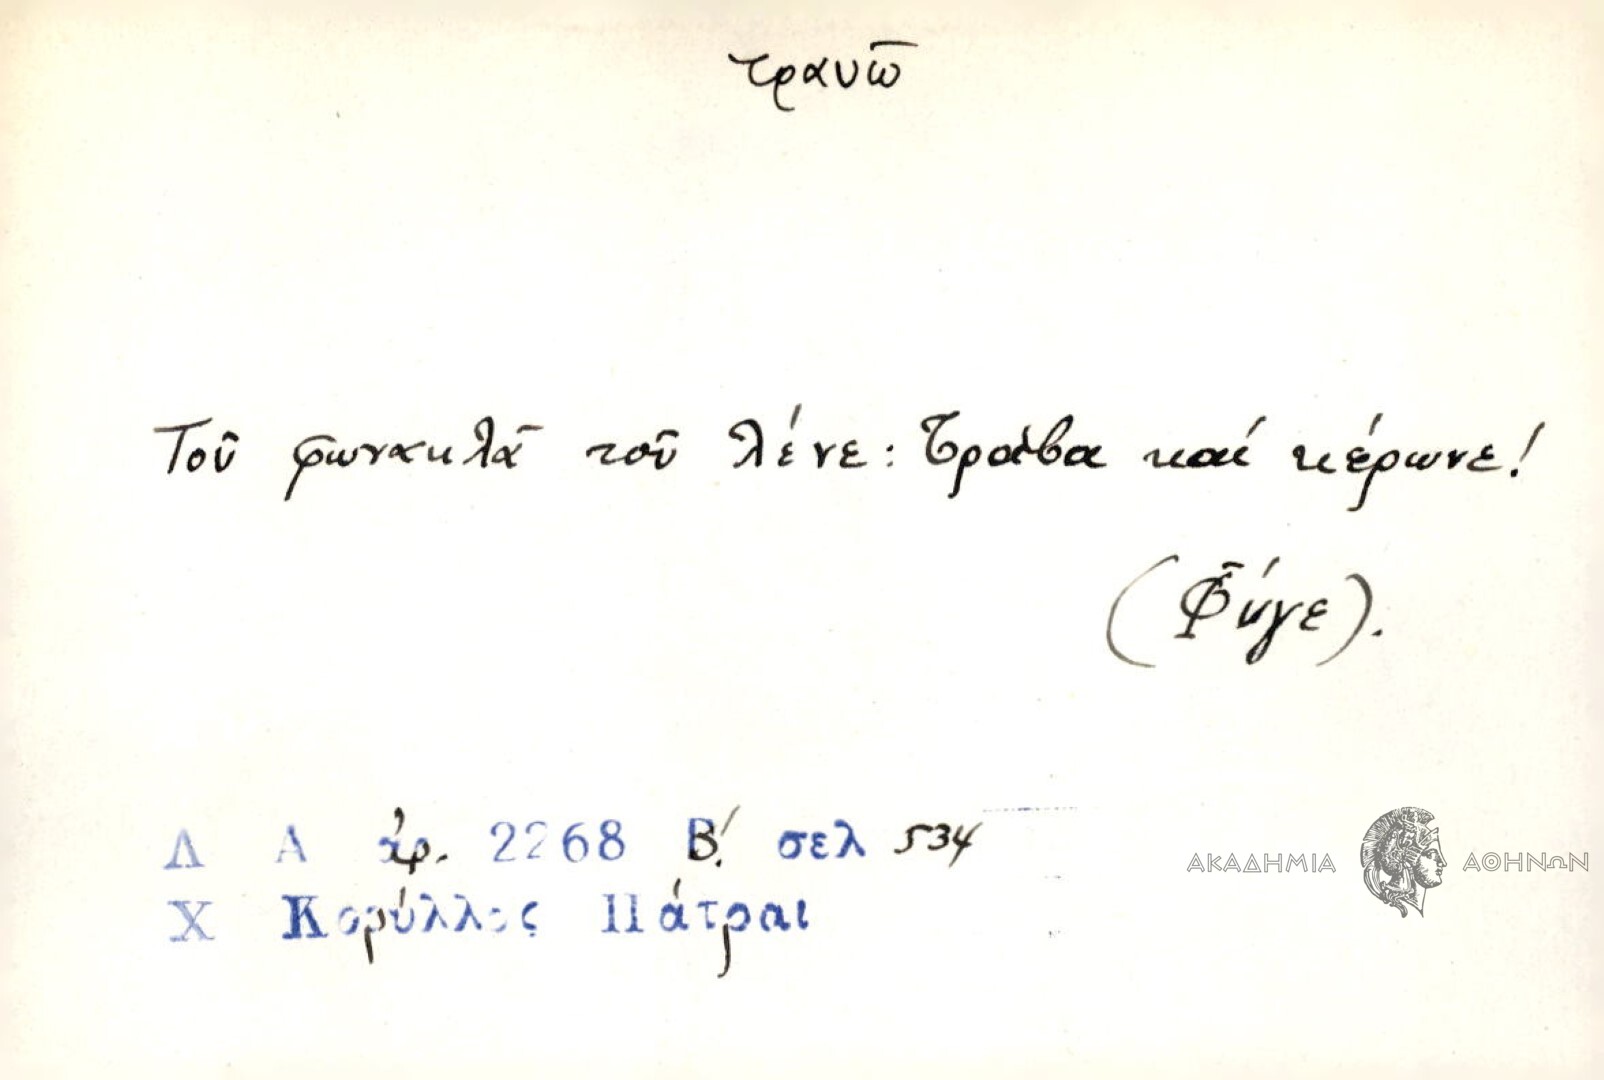 τραυῶ
Τοῦ φωνακλᾶ τοῦ λένε: Τράβα καί κέρωνε!
(Φύγε).
Λ Α ἀρ. 2268 Β΄. σελ 534
Χ Κορύλλος Πάτραι
ΑΚΑΔΗΜΙΑ ΑΘΗΝΩΝ